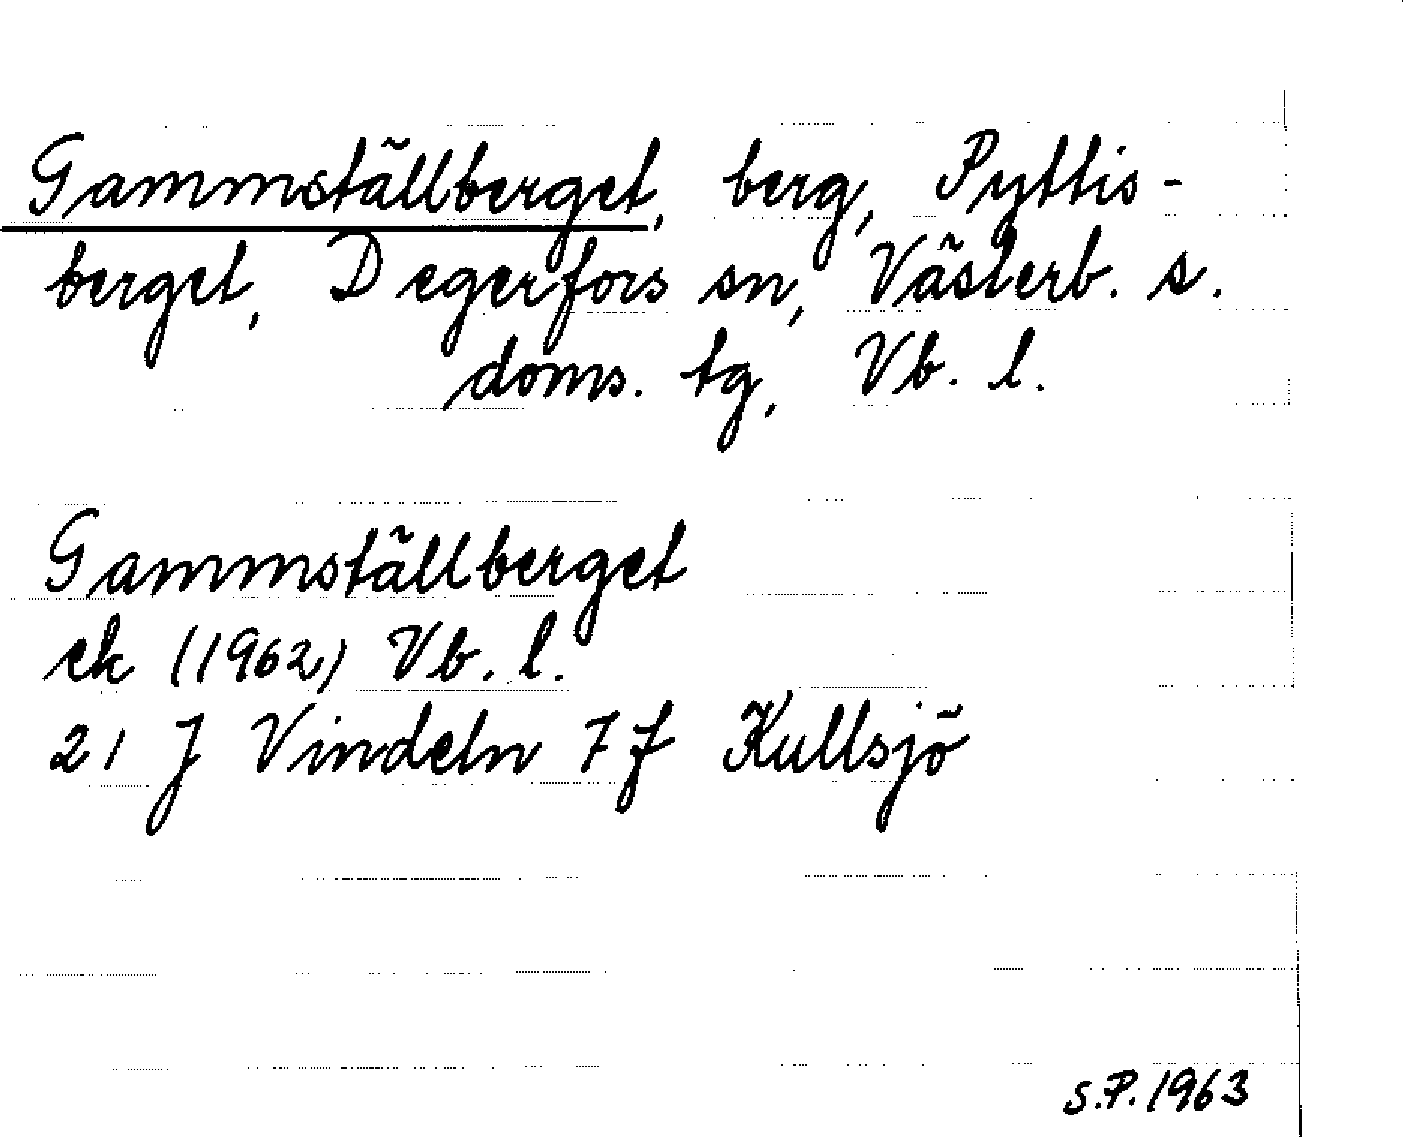 Gammställberget, berg, Pyttis-
berget, Degerfors sn, Västerb. s.
doms. tg, Vb. l.
Gammställberget
ek (1962) Vb. l.
21 J Vindeln 7 f Kullsjö
S.P. 1963